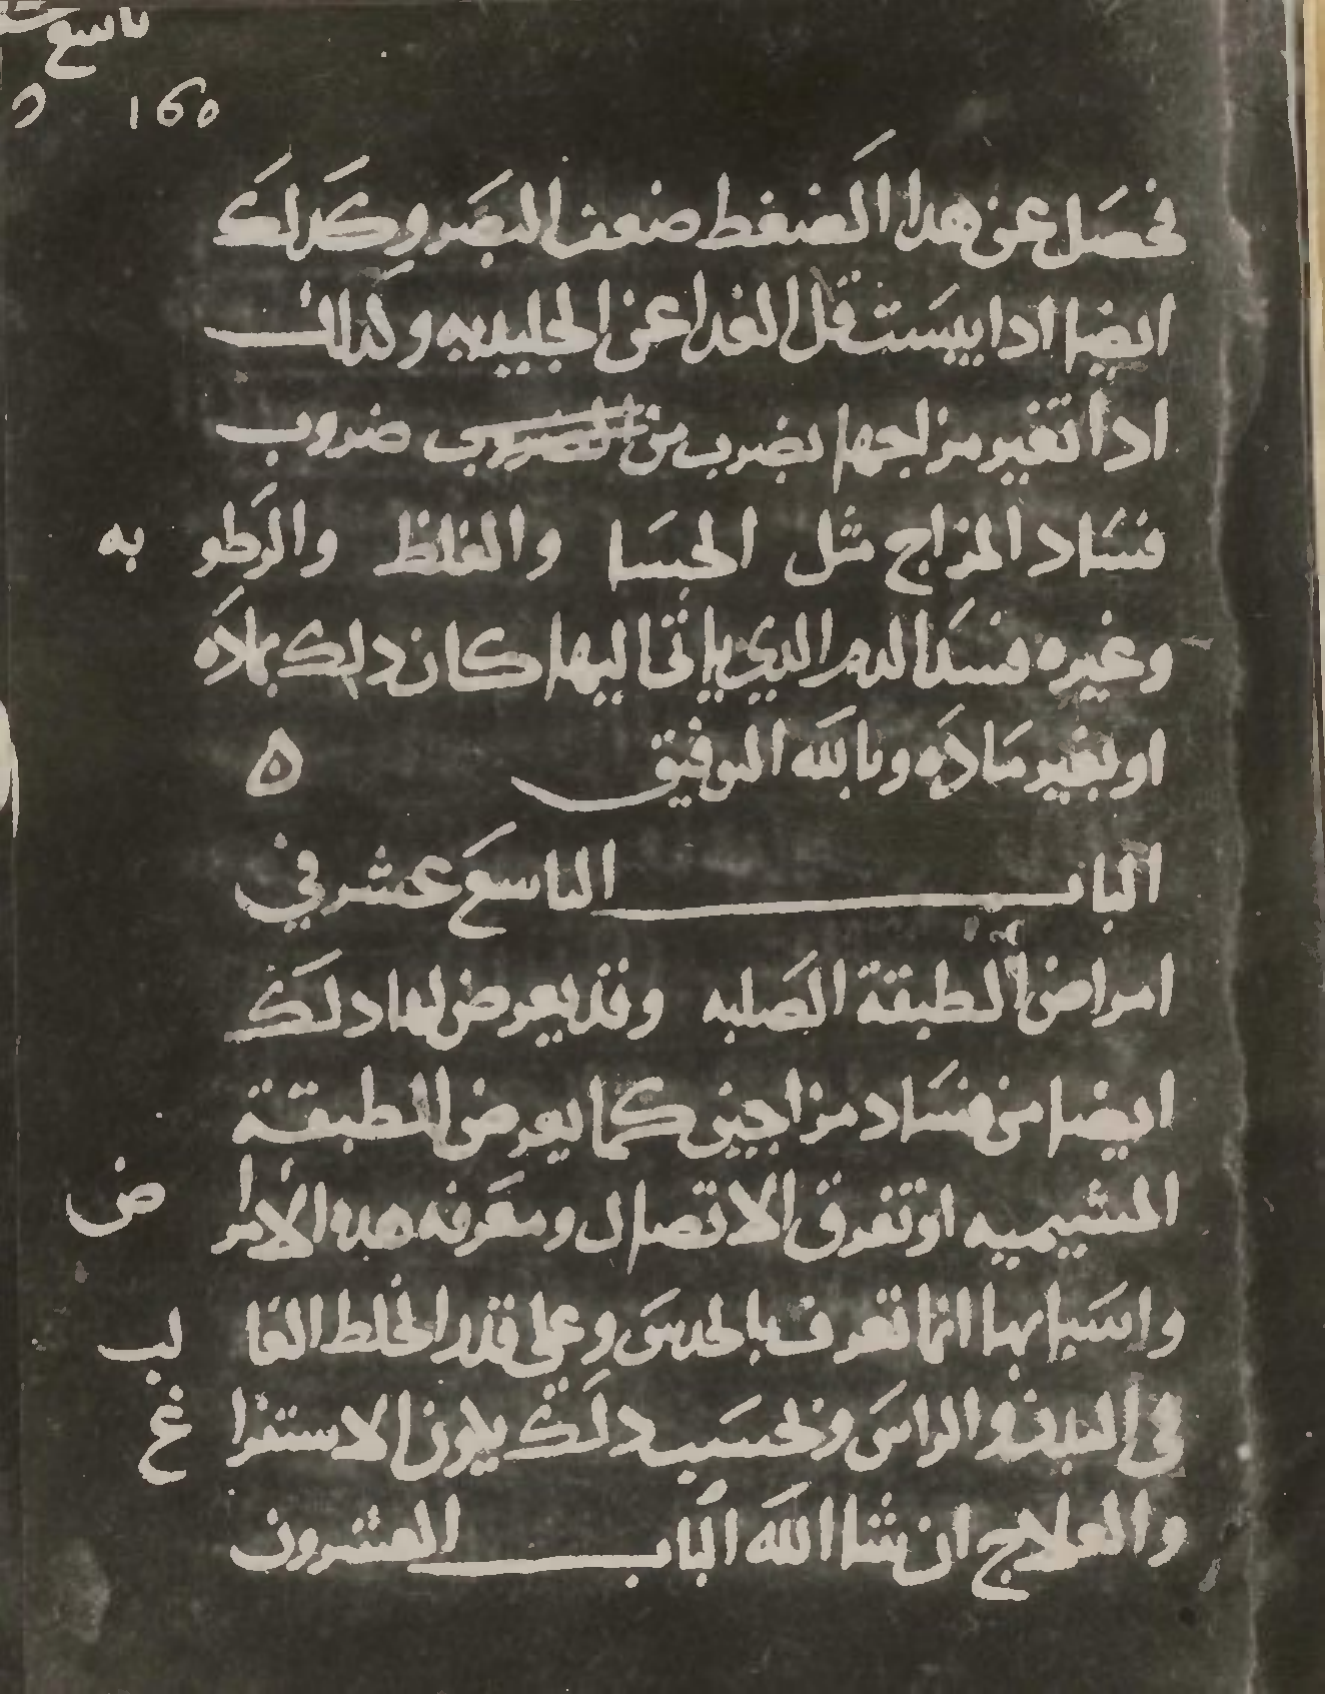 تاسع
160
فحصل عن هدا الضغط ضعف البصر وكدلك
ايضا ادا يبست قل الغدا عن الجليديه وكدلك
ادا تغير مزاجها بضرب من ضروب
فساد المزاج مثل الجسا والغلظ والرطوبه
وغيره فسد الدم الدي ياتي اليها كان دلك بماده
او بغير ماده وبالله التوفيق ه
الباب التاسع عشر في
امراض الطبقة الصلبه وقد يعرض لها دلك
ايضا من فساد مزاجين كما يعرض للطبقة
المشيميه او تفرق الاتصال ومعرفه هده الامراض
واسبابها انما تعرف بالحدس وعلى قدر الخلط الغالب
في البدن والراس وبحسب دلك يكون الاستفراغ
والعلاج ان شا الله الباب العشرون